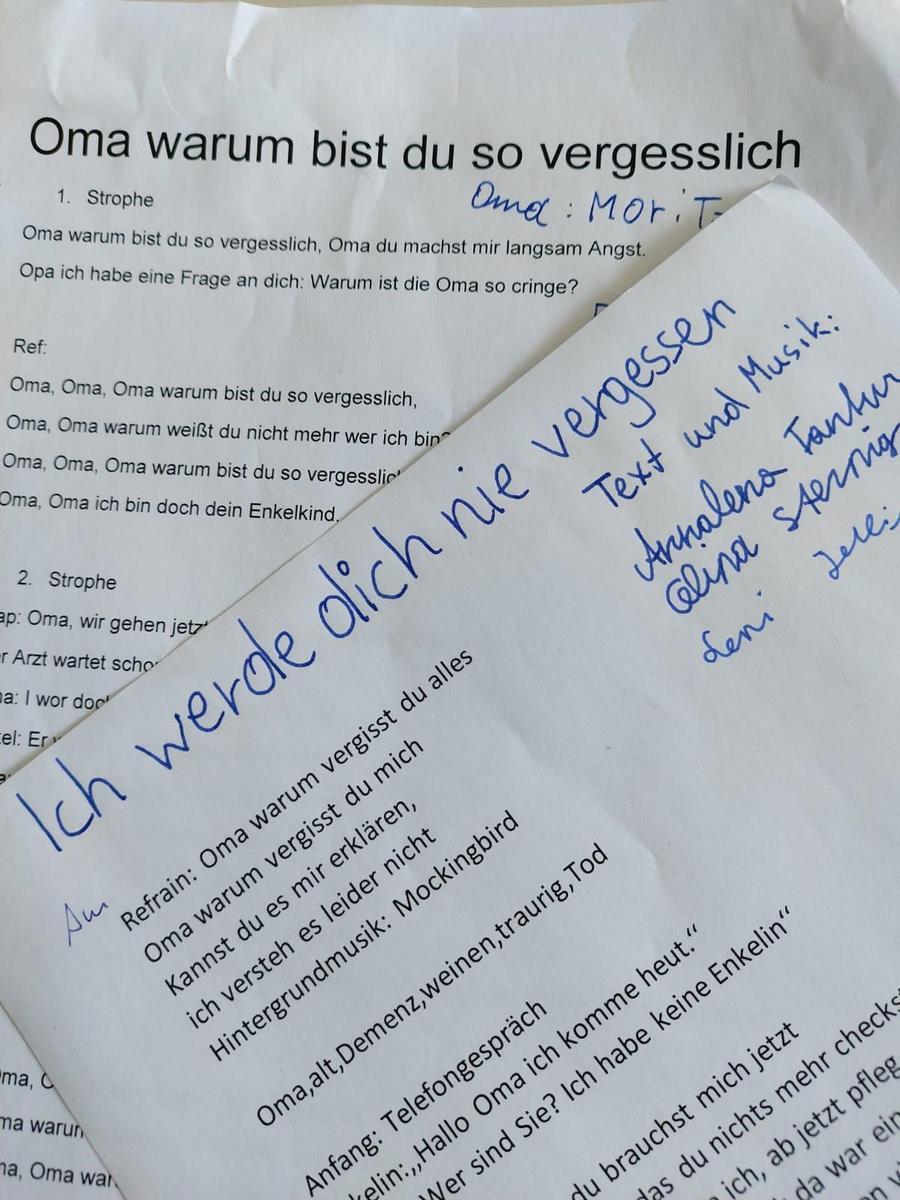 Oma warum bist du so vergesslich
1. Strophe
Oma:
Oma warum bist du so vergesslich, Oma du machst mir langsam Angst.
Opa ich habe eine Frage an dich: Warum ist die Oma so cringe?
Ref:
Oma, Oma, Oma warum bist du so vergesslich,
Oma, Oma warum weißt du nicht mehr wer ich bin?
Oma, Oma, Oma warum bist du so
Oma, Oma ich bin doch dein Enkelkind.
2. Strophe
Oma, wir gehen
Arzt wartet
I wor
Er
warum
Oma
Ich werde dich nie vergessen
Text und Musik:
Annalena
Leni
Refrain: Oma warum vergisst du alles
Oma warum vergisst du mich
Kannst du es mir erklären,
ich versteh es leider nicht
Hintergrundmusik: Mockingbird
Oma,alt,Demenz,weinen,traurig,Tod
Anfang: Telefongespräch
„Hallo Oma ich komme heut.“
Wer sind Sie? Ich habe keine Enkelin“
du brauchst mich jetzt
das du nichts mehr
ich, ab jetzt
da war